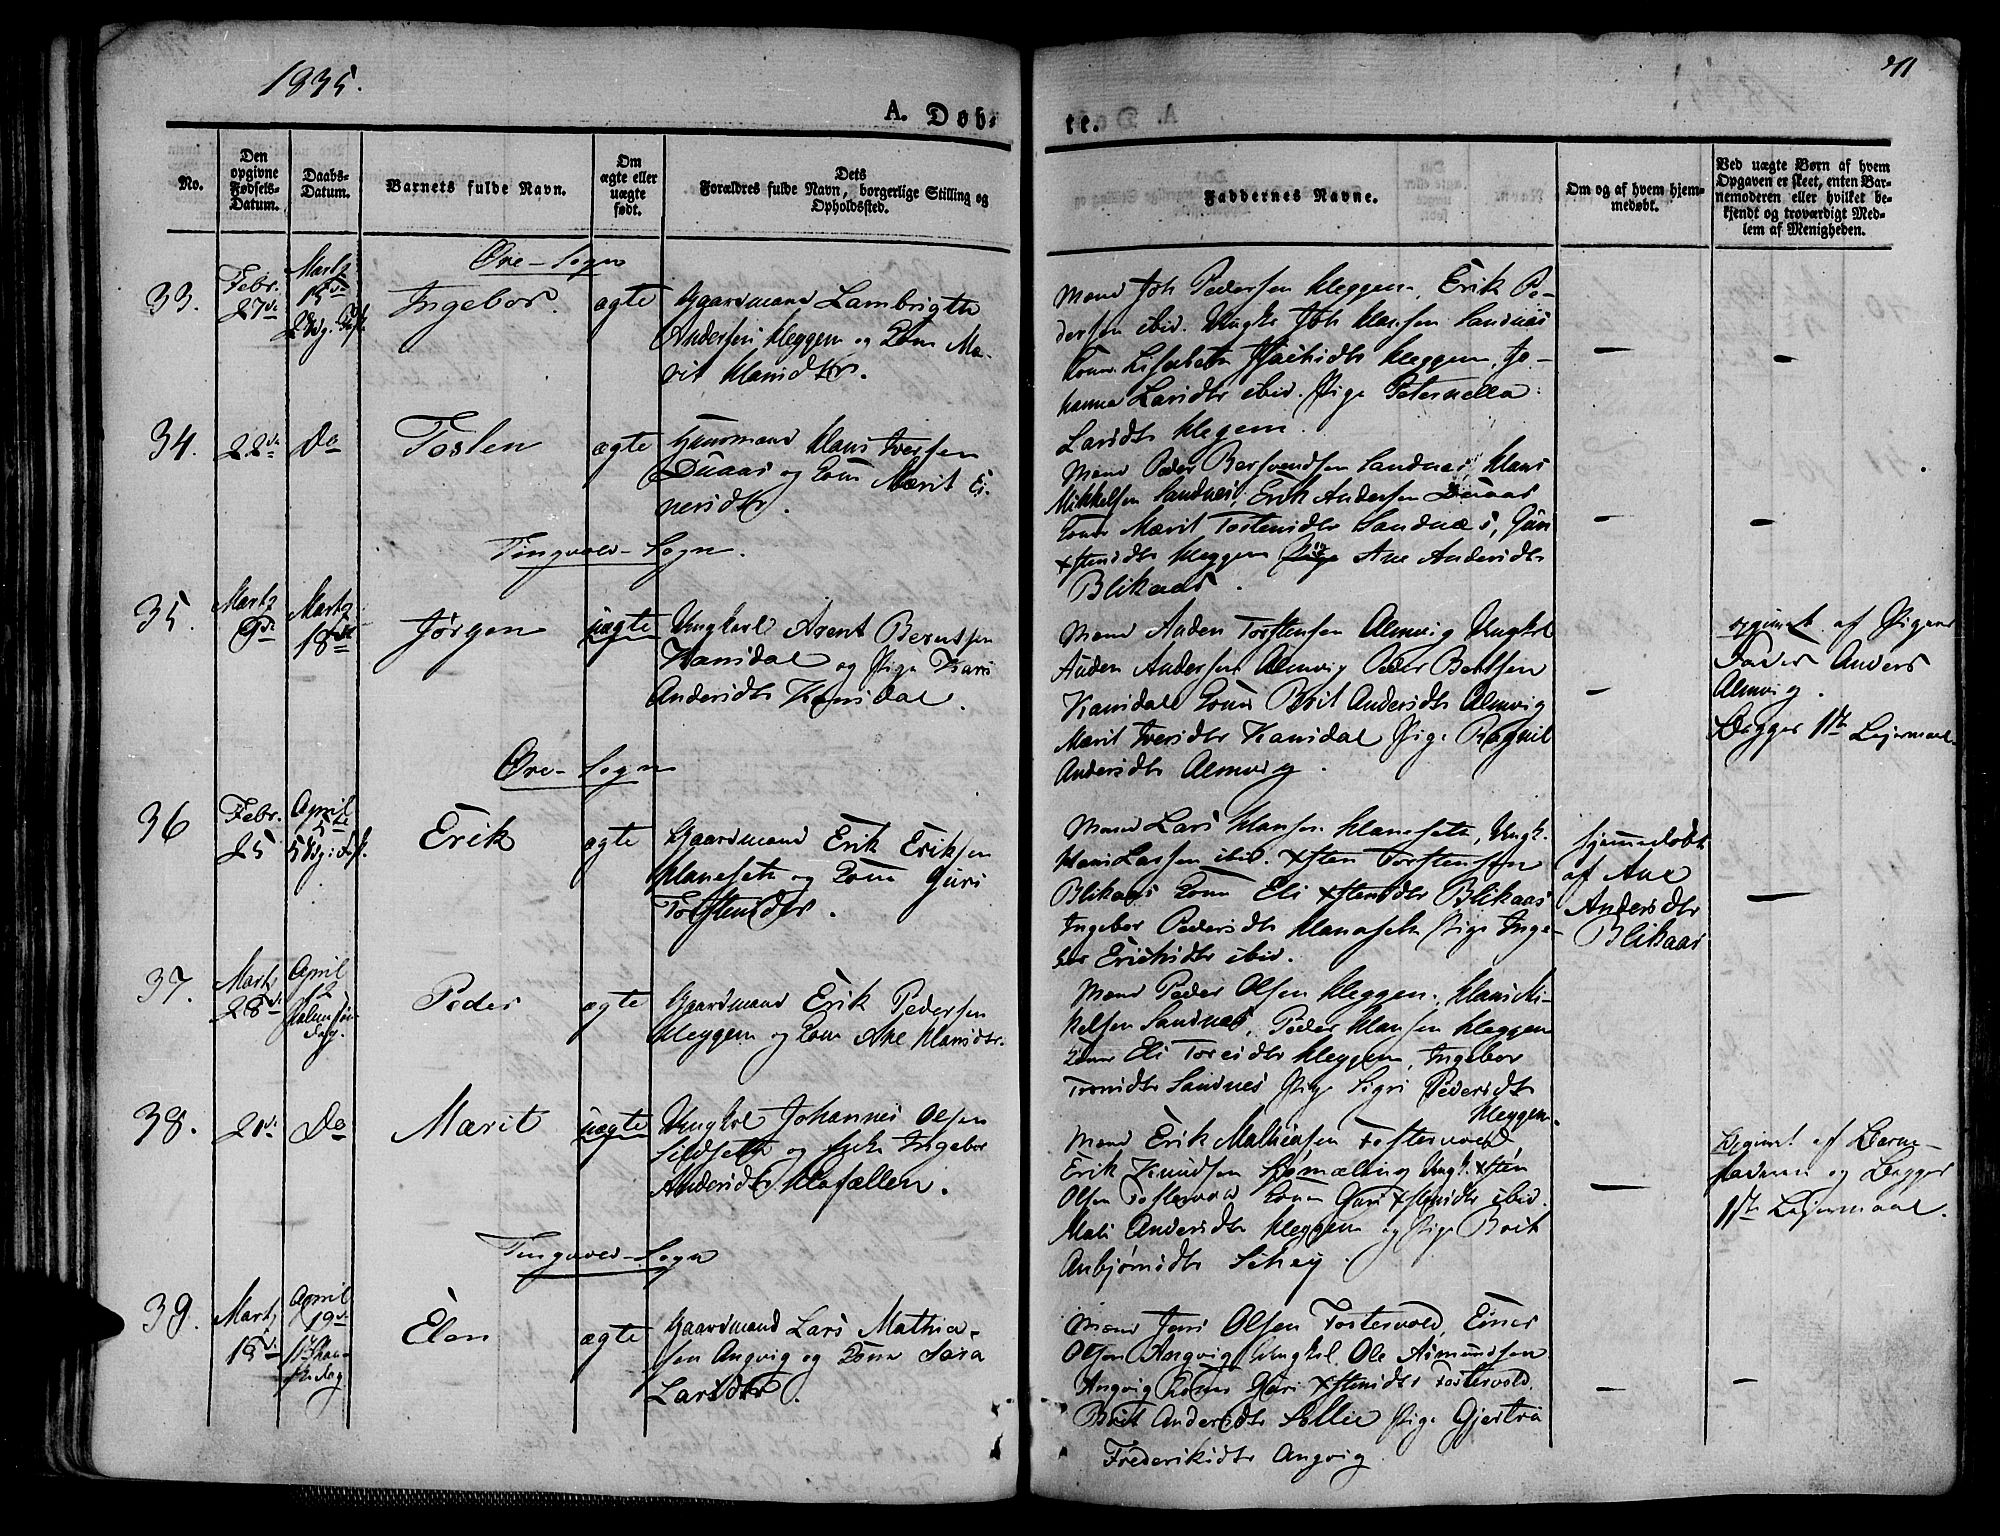 1835.
211
A. Døb-
te.
No.
Den
opgivne
Fødsels-
Datum.
Daabs-
Datum.
Barnets fulde Navn.
Om
ægte eller
uægte
født.
Dets
Forældres fulde Navn, borgerlige Stilling og
Opholdssted.
Faddernes Navne.
Om og af hvem hjem-
medøbt.
Ved uægte Børn af hvem
Opgaven er skeet, enten Bar-
nemoderen eller hvilket be-
kjendt og troværdigt Med-
lem af Menigheden.
Øre-Sogn
33.
Febr.
27de
Martz
15de
Ingebor.
ægte
Gaardmand Lambrigth
Andersen Kleggen og Kone Ma-
rit Klausdtr.
Mænd Joh Pedersen Kleggen, Erik Pe-
dersen ibid. Ungk. Joh Klausen Sandnæs
Koner Lisabeth Kleggen, Jo-
hanna Larsdtr ibid. Pige Peternella
Larsdtr Kleggen.
—
—
34.
22de
Do
Tosten
ægte
Huusmand Klaus Iversen
Duaas og Kone Marit Ei-
nersdtr.
Mænd Peder Bersvendsen Sandnæs, Klaus
Mikkelsen Sandnæs, Erik Andersen Duaas
Koner Marit Tostensdtr Sandnæs, Guri
Xstensdtr Kleggen Pige Ane Andersdtr
Blikaas.
—
—
Tingvold-Sogn.
35.
Martz
9de
Martz
18de
Jørgen
uægte
Ungkarl Arent Berntsen
Kansdal og Pige Kari
Andersdtr Kansdal.
Mænd Anders Torstensen Almvig Ungkrl
Anders Andersen Almvig Peder Bentsen
Kansdal Koner Brit Andersdtr Almvig
Marit Iversdtr Kansdal Pige Ragnil
Andersdtr Almvig.
—
opgivet af Pigens
Fader Anders
Almvig.
Begges 1ste Lejermaal.
Øre-Sogn
36
Febr.
25
April
5te
Erik
ægte
Gaardmand Erik Eriksen
Klaneseth og Kone Guri
Torstensdtr.
Mænd Lars Hansen Klaneseth, Ungk.
Hans Larsen ibid. Xsten Torstensen
Blikaas Koner Eli Xstensdtr Blikaas
Ingebor Pedersdtr Klaneseth Pige Inge-
bor Eriksdtr ibid.
hjemmedøbt
af Ane
Andersdtr
Blikaas
—
37.
Martz
28de
April
12
Palmesøn-
dag.
Peder
ægte
Gaardmand Erik Pedersen
Kleggen og Kone Ane Klausdtr.
Mænd Peder Olsen Kleggen, Klaus Mi-
kelsen Sandnæs, Peder Klausen Kleggen
Koner Eli Toresdtr Kleggen, Ingebor
Sandnæs Pige Sigri Pedersdtr
Kleggen.
38.
21de
Do
Marit
uægte
Ungkrl Johannes Olsen
og Ingebor
Andersdtr
Mænd Erik Mathiasen Fostervold
Erik Knudsen Ungk. Xsten
Olsen Fostervold Koner Guri Xstensdtr ibid.
Mali Andersdtr Kleggen og Pige Brit
Anbjørnsdtr
—
Opgivet af Barne-
faderen og Begges
1ste Lejermaal.
Tingvold-Sogn
39.
Martz
15de
April
19de
Elen
ægte
Gaardmand Lars Mathia-
sen Angvig og Kone Sara
Larsdtr.
Mænd Jens Olsen Fostervold, Einer
Olsen Angvig Ungkrl. Ole Asmundsen
Angvig Koner Guri Xstensdtr Fostervold.
Brit Andersdtr Sollie Pige Gjertru
Frederiksdtr Angvig
—
—